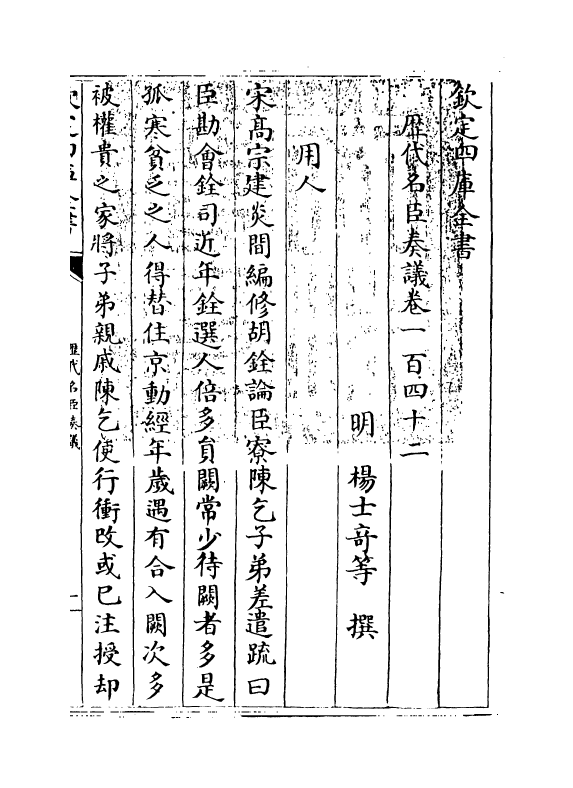 欽定四庫全書
歷代名臣奏議卷一百四十二
明 楊士竒等 撰
用人
宋髙宗建炎間編修胡銓論臣寮陳乞子弟差遣疏曰
臣勘會銓司近年銓選人倍多員闕常少待闕者多是
孤寒貧乏之人得替住京動經年歲遇有合入闕次多
被權貴之家將子弟親戚陳乞使行衝改或已注授却
歷代名臣奏議